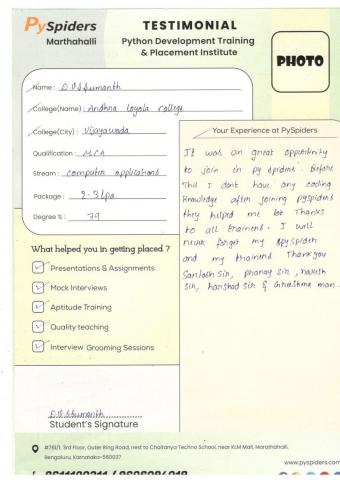 PySpiders
Marthahalli
TESTIMONIAL
Python Development Training
& Placement Institute
PHOTO
Name : D.V.S Sumanth
College(Name) : Andhra loyola college
College(City) : Vijayawada
Qualification : MCA
Stream : computer applications
Package : 2-3 lpa
Degree % : 79
Your Experience at PySpiders
It was an great oppotunity
to join in py spiders. Before
This I dont have any coding
knowledge after joining pyspiders
they helped me lot Thanks
to all trainers. I will
never forget my Spyspiders
and my trainers Thank you
Santosh sir, pranay sir, rakesh
sir, harshad sir & Greeshma mam.
What helped you in getting placed ?
Presentations & Assignments
Mock Interviews
Aptitude Training
Quality teaching
Interview Grooming Sessions
D.V.S Sumanth
Student's Signature
#761/1, 3rd Floor, Outer Ring Road, nest to Chaitanya Techno School, near KLM Mall, Marathahalli,
Bengaluru, Karnataka-560037
www.pyspiders.com